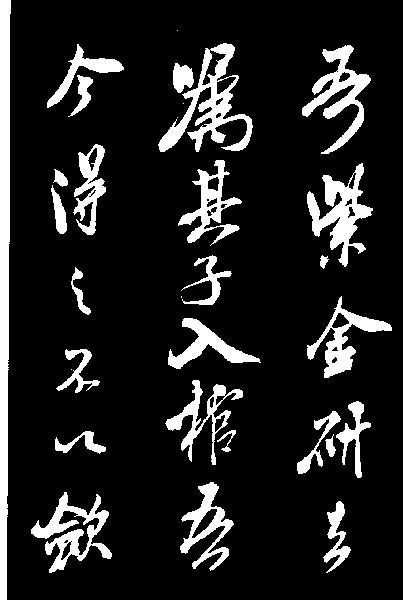 吾紫金研去
嘱其子入棺吾
今得之不以敛